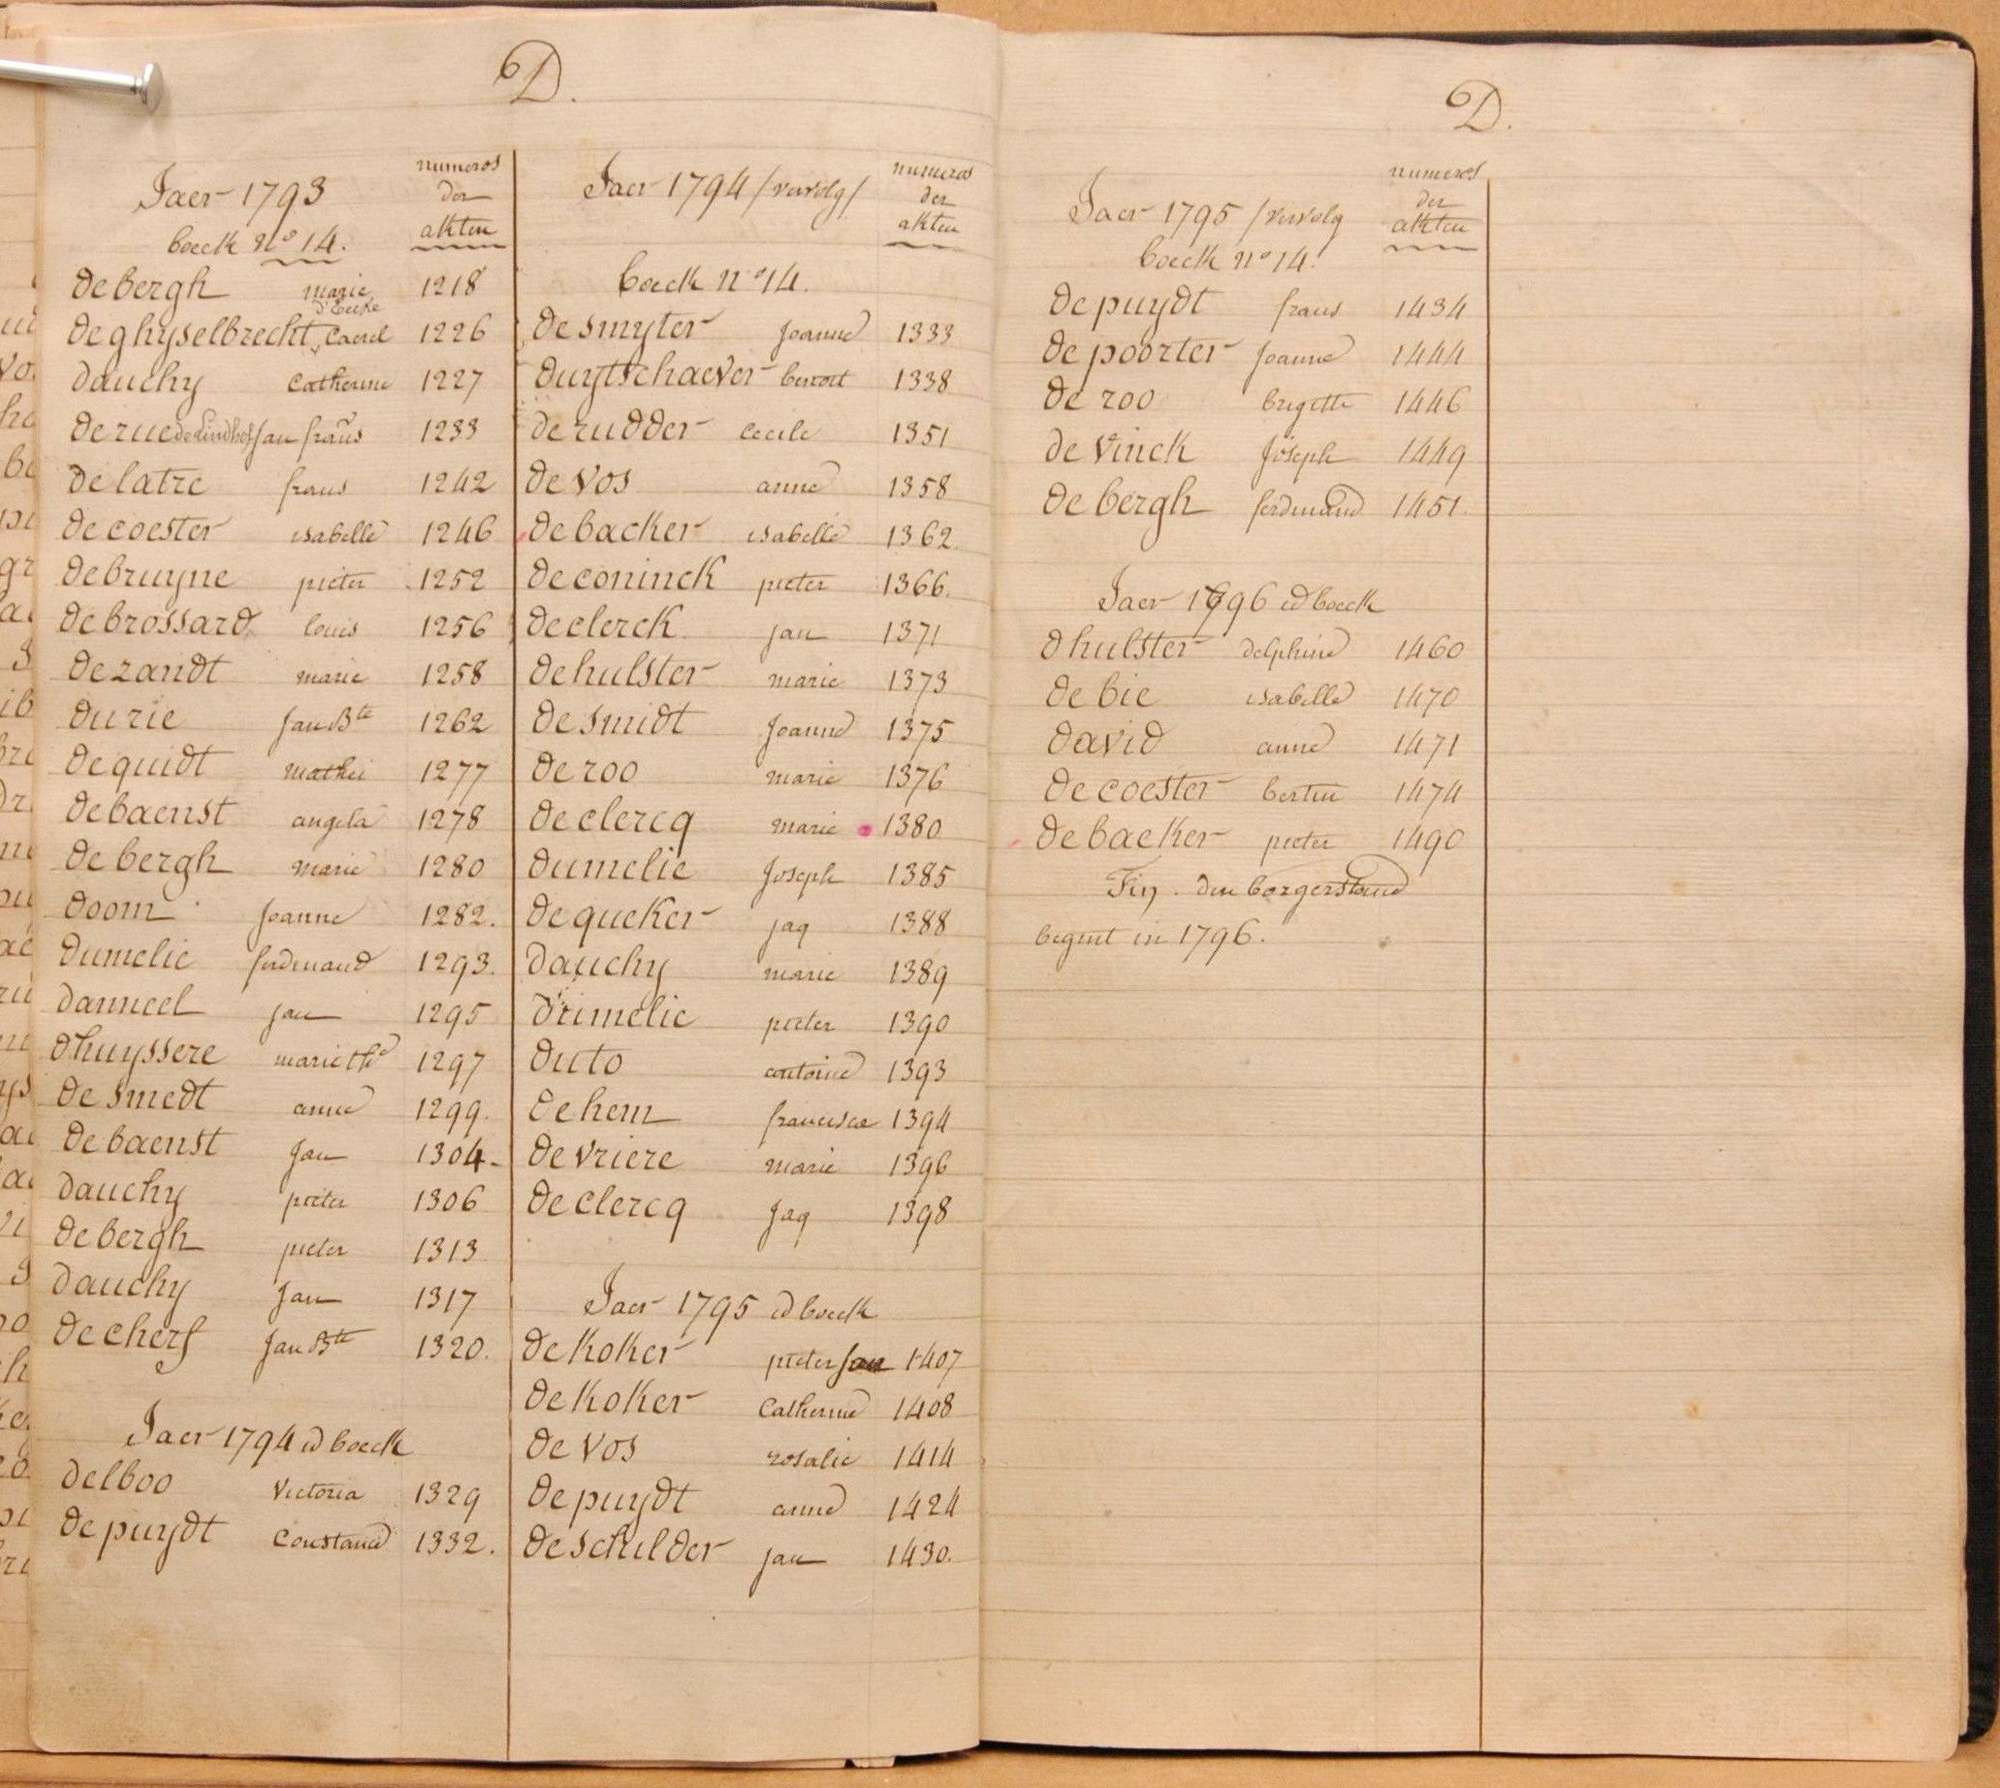 D.
Jaer 1793
numeros
der
akten
boeck nº 14.
de bergh marie 1218
d'Eecke
de ghyselbrecht, Caerel 1226
dauchy Catherine 1227
de rue de Lindhof jan frans 1233
de latre frans 1242
de coester isabelle 1246
de bruyne pieter 1252
de brossard louis 1256
de zandt marie 1258
durie Jan Bte 1262
de quidt mathei 1277
de baenst angela 1278
de bergh marie 1280
doom Joanne 1282.
dumelie ferdinand 1293.
danneel jan 1295
dhuyssere marie the 1297
de smedt anne 1299.
de baenst Jan 1304
dauchy pieter 1306
de bergh pieter 1313
dauchy Jan 1317
de cherf Jan Bte 1320.
Jaer 1794 id boeck
delboo Victoria 1329
de puydt Constance 1332.
Jaer 1794 /vervolg/
numeros
der
akten
boeck nº 14.
de smyter Joanne 1333
duytschaever benoit 1338
de rudder Cecile 1351
de vos anne 1358
de backer isabelle 1362.
de coninck pieter 1366.
de clerck jan 1371
de hulster marie 1373
de smidt Joanne 1375
de roo marie 1376
de clercq marie 1380
dumelie Joseph 1385
de queker jaq 1388
dauchy marie 1389
drimelie pieter 1390
duto antoine 1393
dehem francisca 1394
de vriere marie 1396
de clercq Jaq 1398
Jaer 1795 id boeck
de koker pieter Jan 1407
de koker Catherine 1408
de vos rosalie 1414
de puydt anne 1424
de schilder jan 1430.
D.
Jaer 1795 /vervolg
numeros
der
akten
boeck nº 14.
de puydt frans 1434
de poorter Joanne 1444
de roo brigitte 1446
de vinck Joseph 1449
de bergh ferdinand 1451.
Jaer 1796 id boeck
dhulster delphine 1460
de bie isabelle 1470
david anne 1471
de coester bertin 1474
de backer pieter 1490
Fin. den borgerstand
begint in 1796.